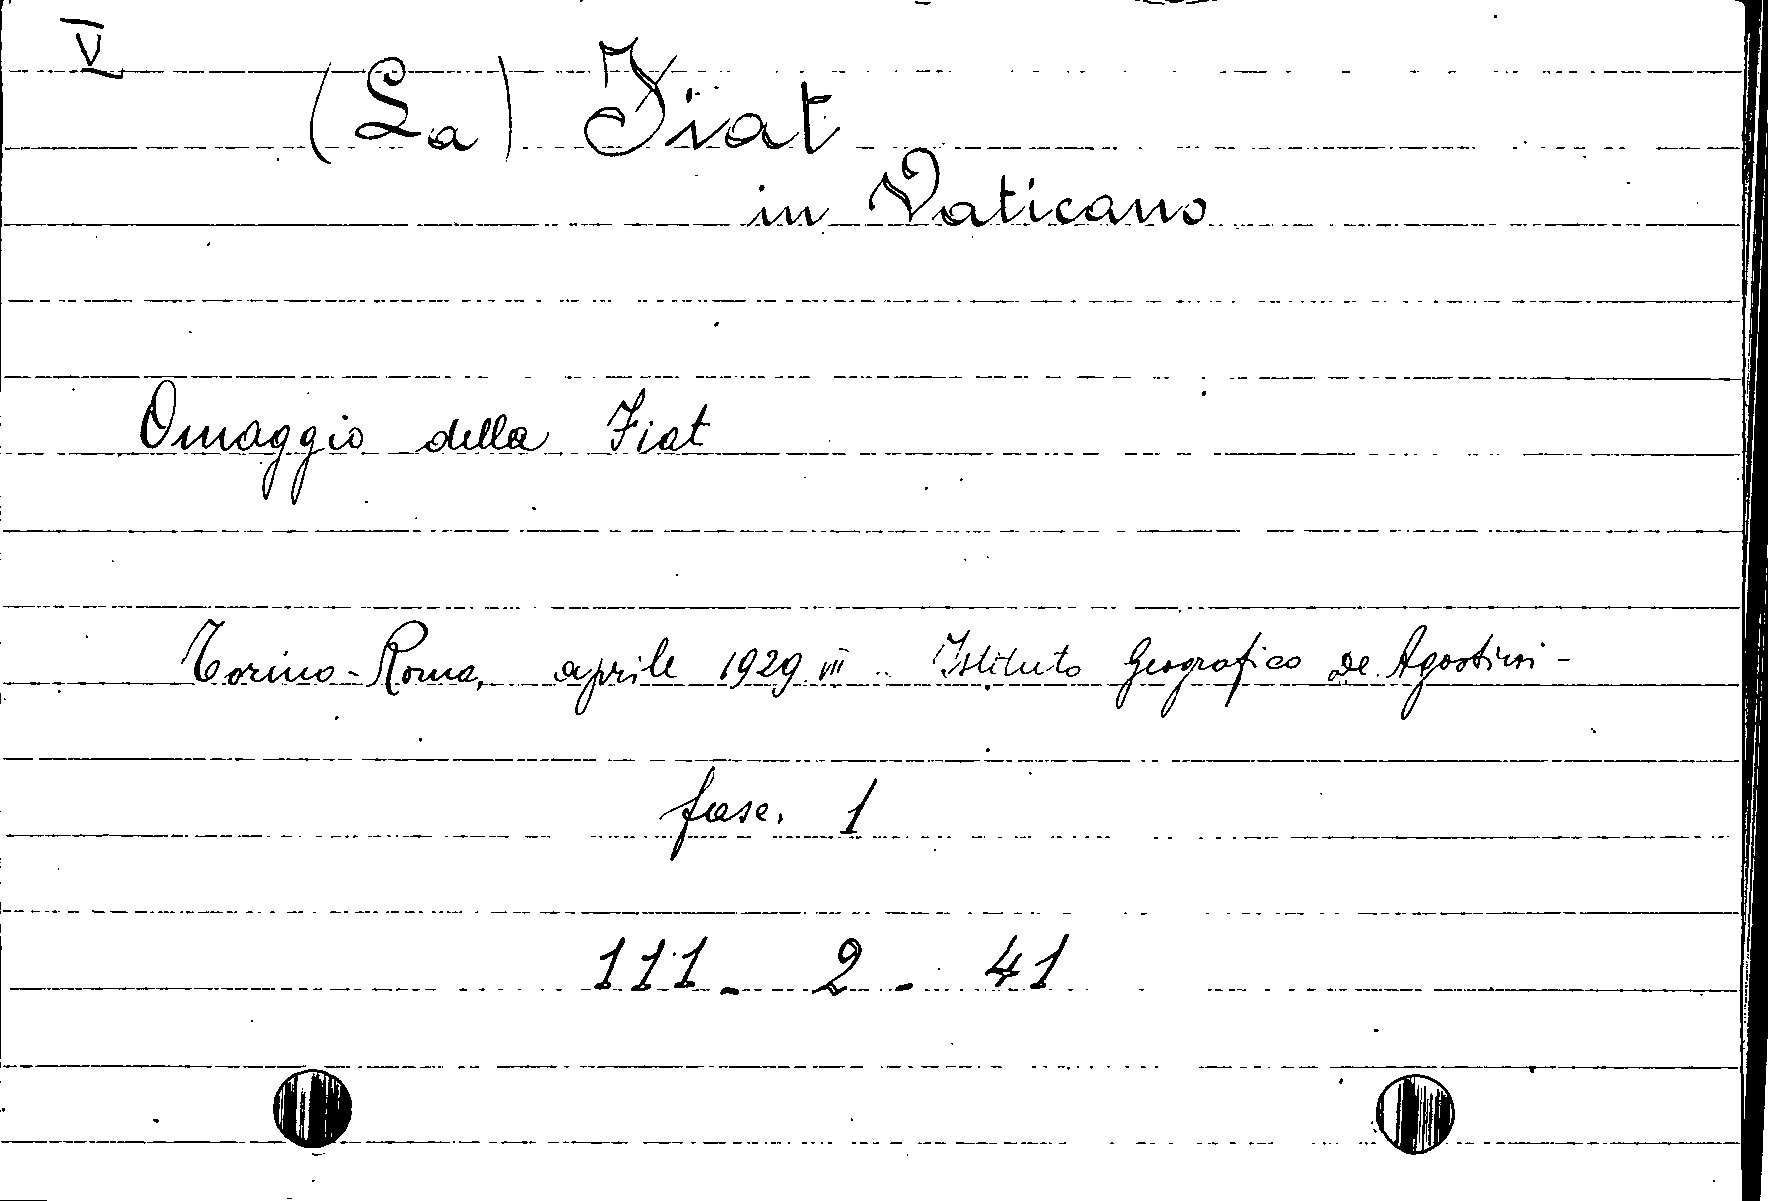 V
(La) Fiat
in Vaticano
Omaggio della Fiat
Torino-Roma, aprile 1929 VII - Istituto Geografico De Agostini -
fasc. 1
111 - 2 - 41